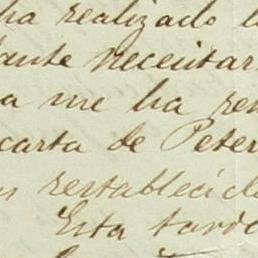 ha realizado
ante necesitar
a me ha
carta de Peter
restablecid
Esta tarde